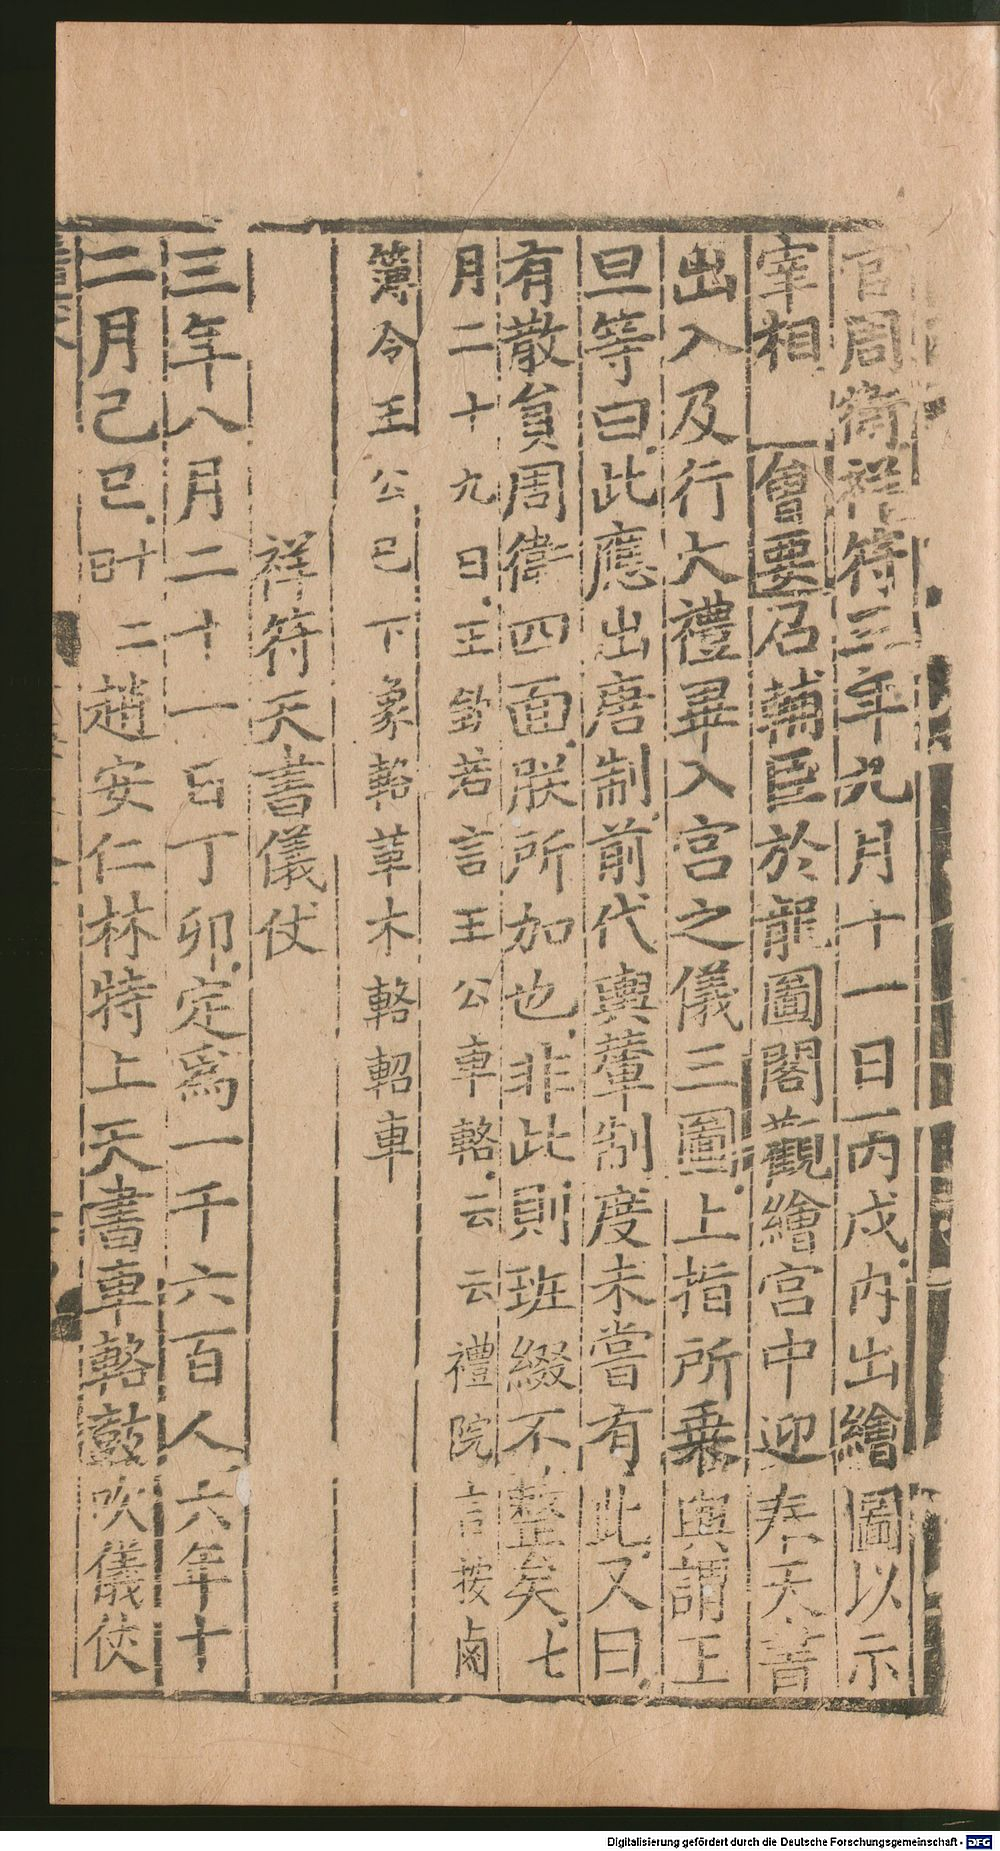 官周衛祥符三年九月十一日丙戌内出繪圖以示
宰相 會要召輔臣於龍圖閣觀繪宮中迎奉天書
出入及行大禮畢入宮之儀三圖上指所乗輿謂王
旦等曰此應出唐制前代輿輦制度未嘗有此又曰
有散貟周衛四面朕所加也非此則班綴不整矣七
月二十九日王欽若言王公車輅云云禮院言按鹵
簿令王公已下象輅革木輅軺車
祥符天書儀仗
三年八月二十一日丁卯定爲一千六百人六年十
二月己巳二十日趙安仁林特上天書車輅鼓吹儀仗
Digitalisierung gefördert durch die Deutsche Forschungsgemeinschaft - DFG